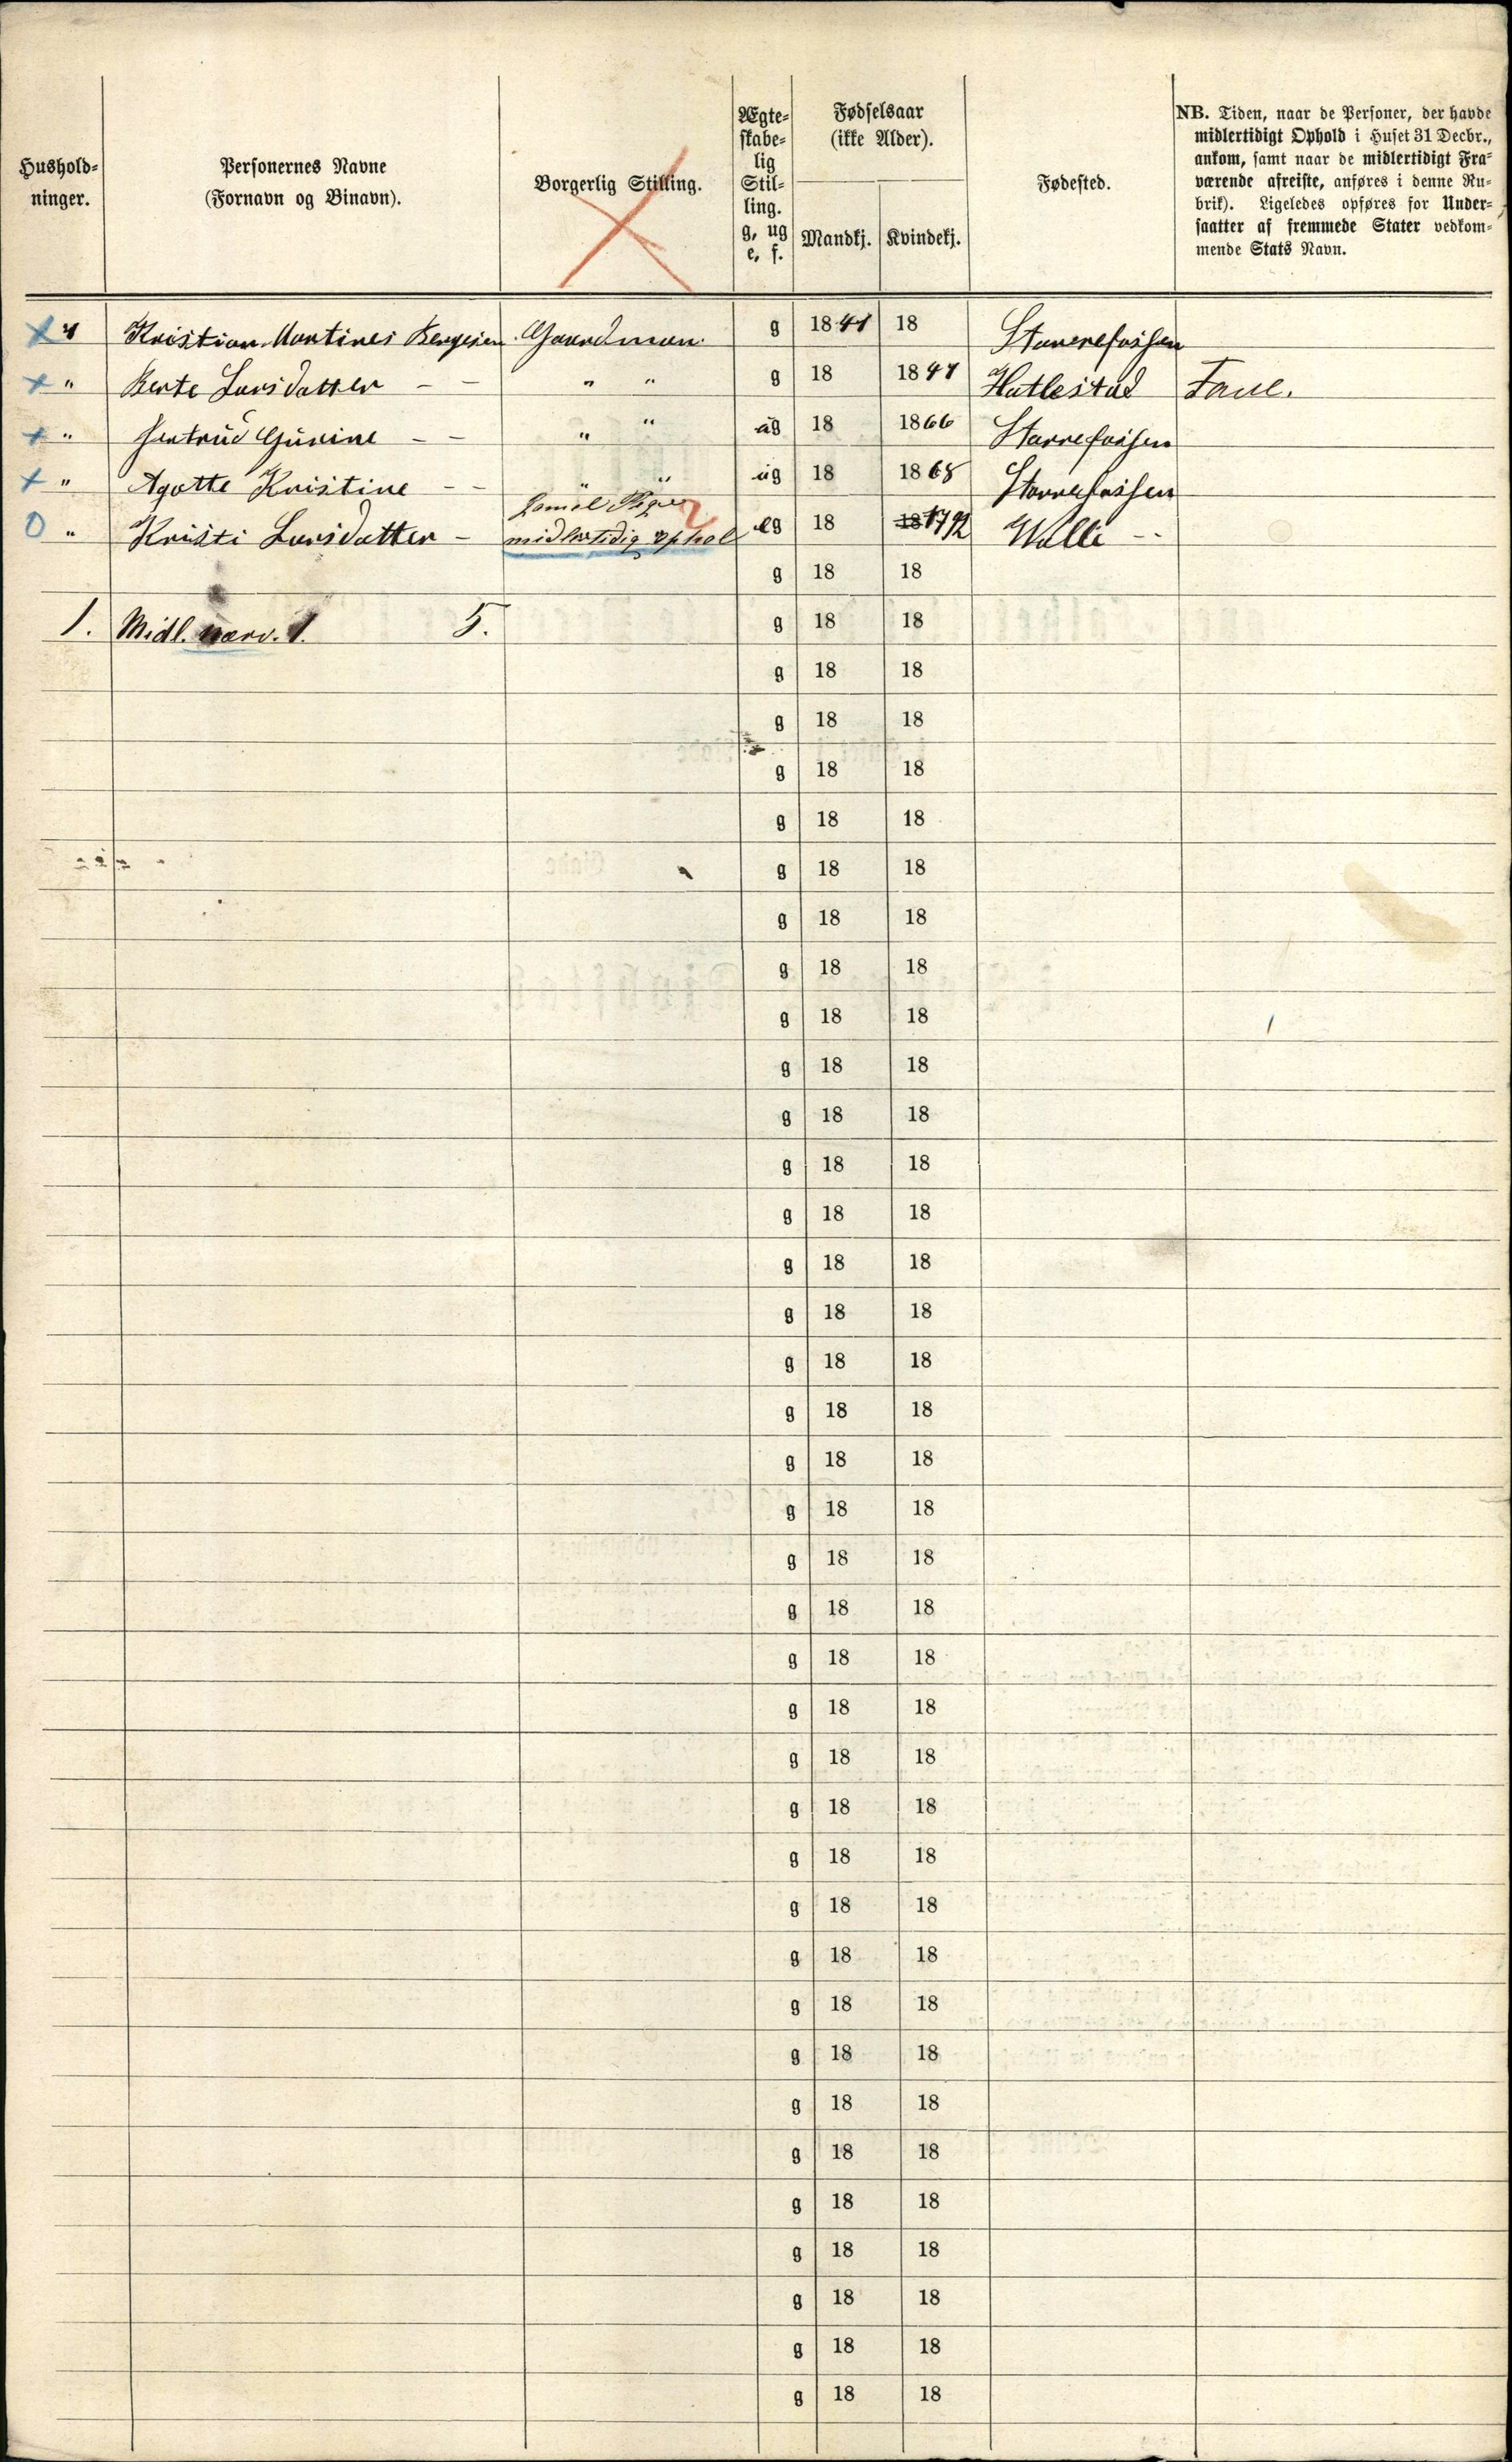 Hushold-
ninger.
Personernes Navne
(Fornavn og Binavn).
Borgerlig Stilling.
Ægte-
skabe-
lig
Stil-
ling.
g, ug
e, f.
Fødselsaar
(ikke Alder).
Mandkj. Kvindekj.
Fødested.
NB. Tiden, naar de Personer, der havde
midlertidigt Ophold i Huset 31 Decbr.,
ankom, samt naar de midlertidigt Fra-
værende afreiste, anføres i denne Ru-
brik). Ligeledes opføres for Under-
saatter af fremmede Stater vedkom-
mende Stats Navn.
Kristian Martines Bergesen Gaardman g 1841 18
Berte Larsdatter - - " " g 18 1847 Hatlestad
" Gurine - - " " ug 18 1866
" Agatte Kristine - - " " ug 18 1868
" Kristi Larsdatter - midlertidig ophol 18 1792 Walle --
g 18 18
1. Midl. nærv. 1. 5. g 18 18
g 18 18
g 18 18
g 18 18
g 18 18
g 18 18
g 18 18
g 18 18
g 18 18
g 18 18
g 18 18
g 18 18
g 18 18
g 18 18
g 18 18
g 18 18
g 18 18
g 18 18
g 18 18
g 18 18
g 18 18
g 18 18
g 18 18
g 18 18
g 18 18
g 18 18
g 18 18
g 18 18
g 18 18
g 18 18
g 18 18
g 18 18
g 18 18
g 18 18
g 18 18
g 18 18
g 18 18